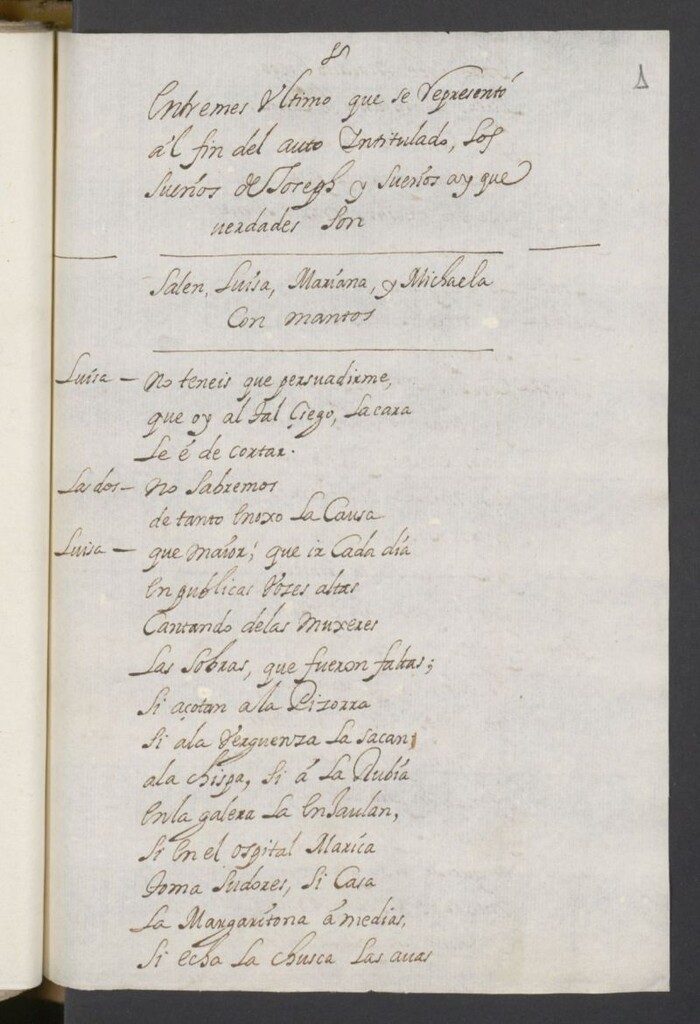 Entremes Vltimo que se Representó
ál fin del auto Intitulado, Los
Sueños de Joseph y Sueños ay que
verdades Son
Salen, Luisa, Mariana, y Michaela
Con mantos
Luisa — No teneis que persuadirme,
que oy al tal Ciego, La cara
Le é de cortar.
Las dos — No Sabremos
de tanto Enoxo La Causa
Luisa — que maior; que ir Cada día
En publicas Vozes altas
Cantando delas Muxeres
Las Sobras, que fueron faltas;
Si açotan a la Pizorra
Si ala Verguenza La sacan
ala chispa, Si á La Rubía
En la galera La Enjaulan,
Si En el ospital Marica
Toma Sudores, Si Casa
La Margaritona á medias,
Si echa La chusca Las auas